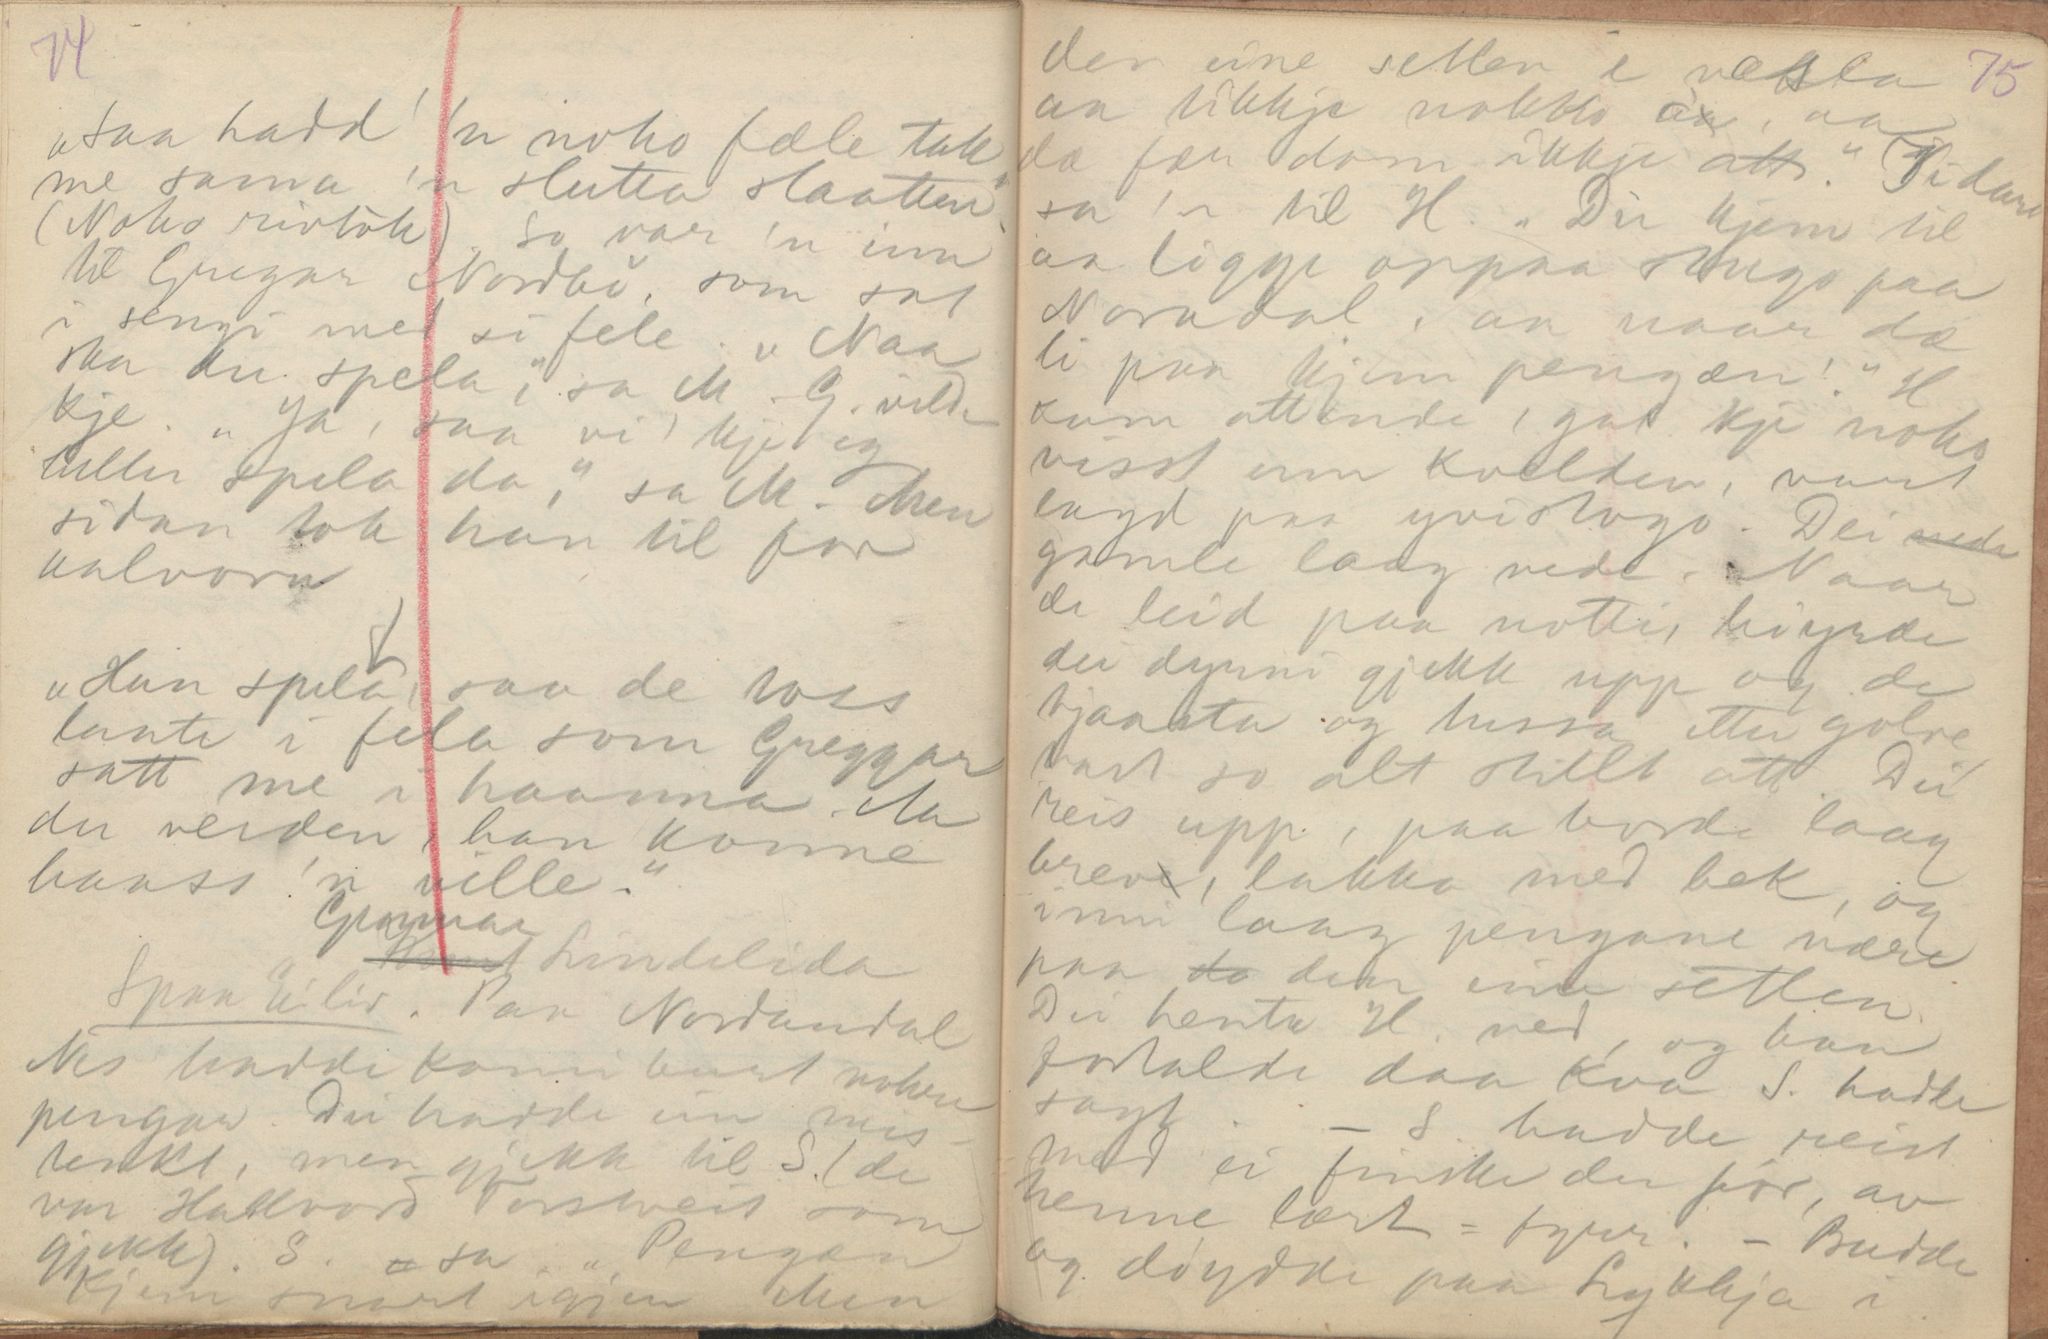 74
„Saa hadd 'n noko fæle tak
me sama 'n slutta slaatten"
(Noko rivtök). So var 'n inn
til Gregar Nordbö, som sat
i sengi med si fele. „Naa
ska du spela", sa M. G. vilde
kje. „Ja, saa vi' kje eg
heller spela da," sa M. Men
sidan tok han til for
aalvora
„Han spela, saa de toss
laate i fela som Greggar
satt me i haanna. Aa
du verden, han konne
haass 'n ville."
Gunnar
Lindelida
Spaa Eiliv. Paa Nordandal
Nes hadde komi burt nokre
pengar. Dei hadde ein mis-
tenkt, men gjekk til S. (de
var Halkvord Torstveit som
gjekk). S. sa „Pengan
kjem snart igjen. Men
75
den eine setlen i veksla
aa likkje nokko av, aa
da fær dom ikkje att." Sidare
sa 'n til H. „Du kjem til
aa liggje oppaa stugo paa
Noradal, aa naar dæ
li paa kjem pengæn!" H
kom attende, gat kje noko
visst um kvelden, vart
lagd paa yvistogo. Dei
gamle laag nede. Naar
de leid paa notti, höyrde
dei dynni gjekk upp og de
tjaasta og tussa etter golve
vart so alt stillt att. Dei
reis upp, paa borde laag
brev, lukka med bek, og
inni laag pengane nære
paa den eine setlen.
Dei henta H. ned, og han
fortalde daa kva S. hadde
sagt. – S. hadde reist
med ei finske der för, av
henne lært – fyrr. – Budde
og döydde paa Lykkja i